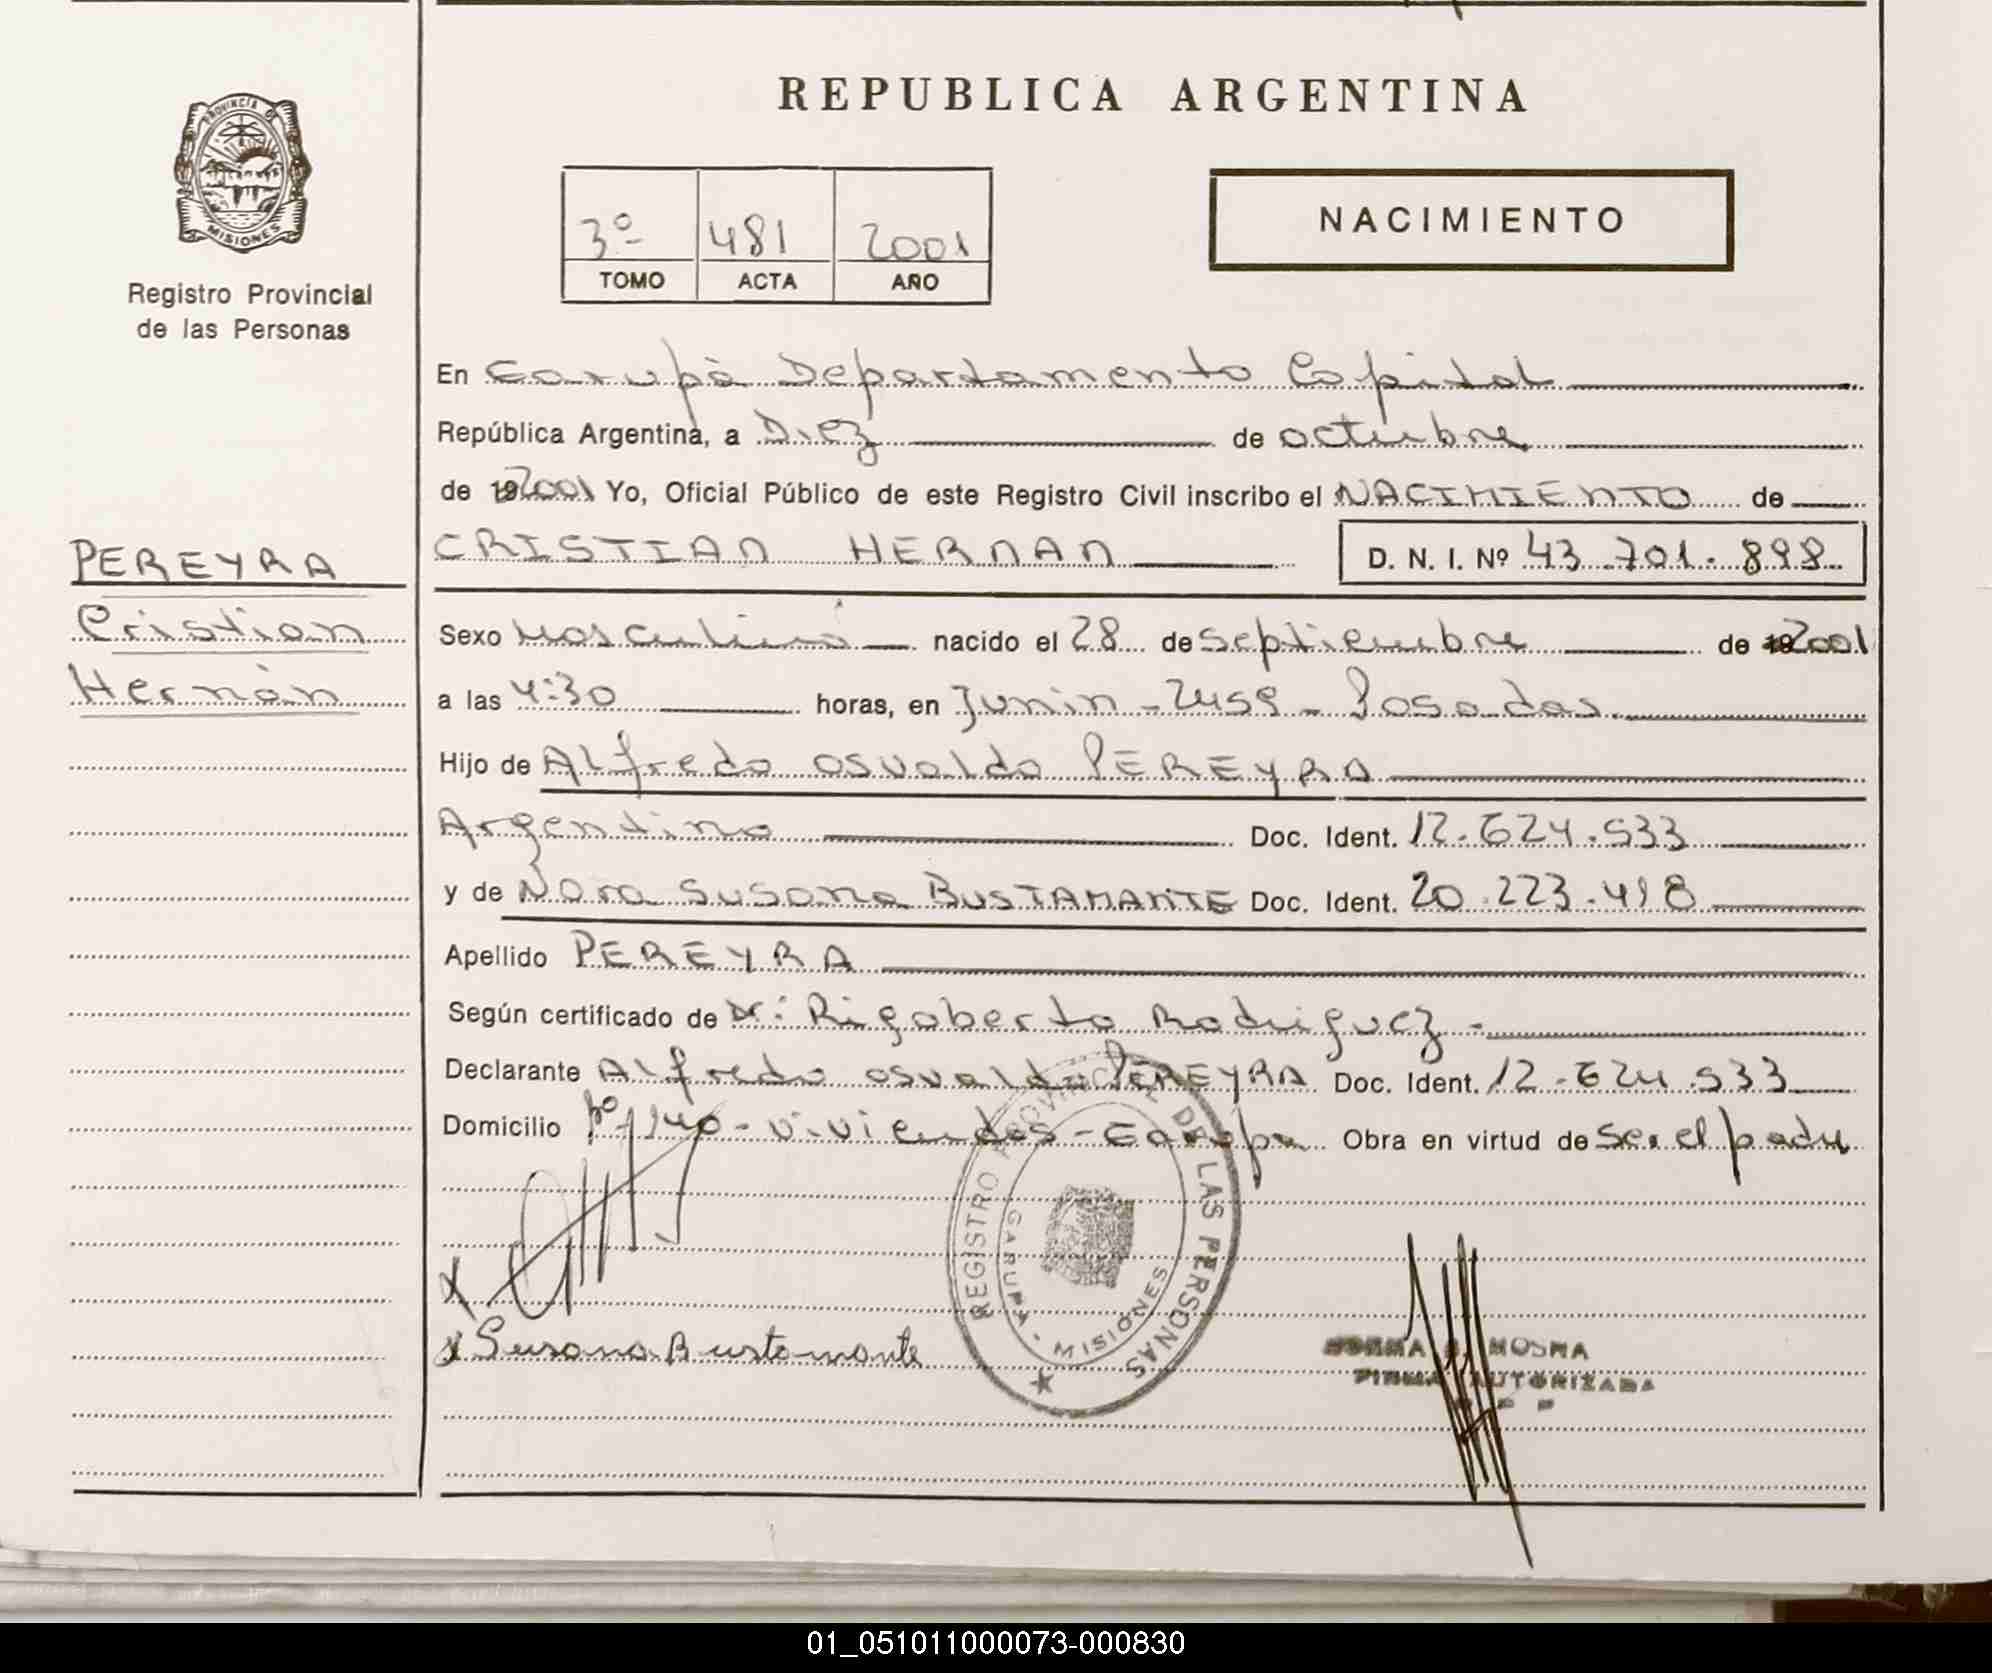 REPUBLICA ARGENTINA
PROVINCIA DE
MISIONES
Registro Provincial
de las Personas
3º 481 2001
TOMO ACTA AÑO
NACIMIENTO
En Garupá Departamento Capital
República Argentina, a Diez de octubre
de 192001 Yo, Oficial Público de este Registro Civil inscribo el NACIMIENTO de
PEREYRA
Cristian
Hernán
CRISTIAN HERNAN D. N. I. Nº 43.701.898
Sexo Masculino nacido el 28 de septiembre de 192001
a las 4:30 horas, en Junin - 2459 - Posadas.
Hijo de Alfredo Osvaldo PEREYRA
Argentino Doc. Ident. 12.624.533
y de Nora Susana BUSTAMANTE Doc. Ident. 20.223.418
Apellido PEREYRA
Según certificado de Dr: Rigoberto Rodriguez -
Declarante Alfredo Osvaldo PEREYRA Doc. Ident. 12.624.533
Domicilio 140 - viviendas - Garupa Obra en virtud de ser el padre
REGISTRO PROVINCIAL DE LAS PERSONAS
GARUPA - MISIONES
x
x Susana Bustamante
NORMA MOSNA
FIRMA AUTORIZADA
01_051011000073-000830